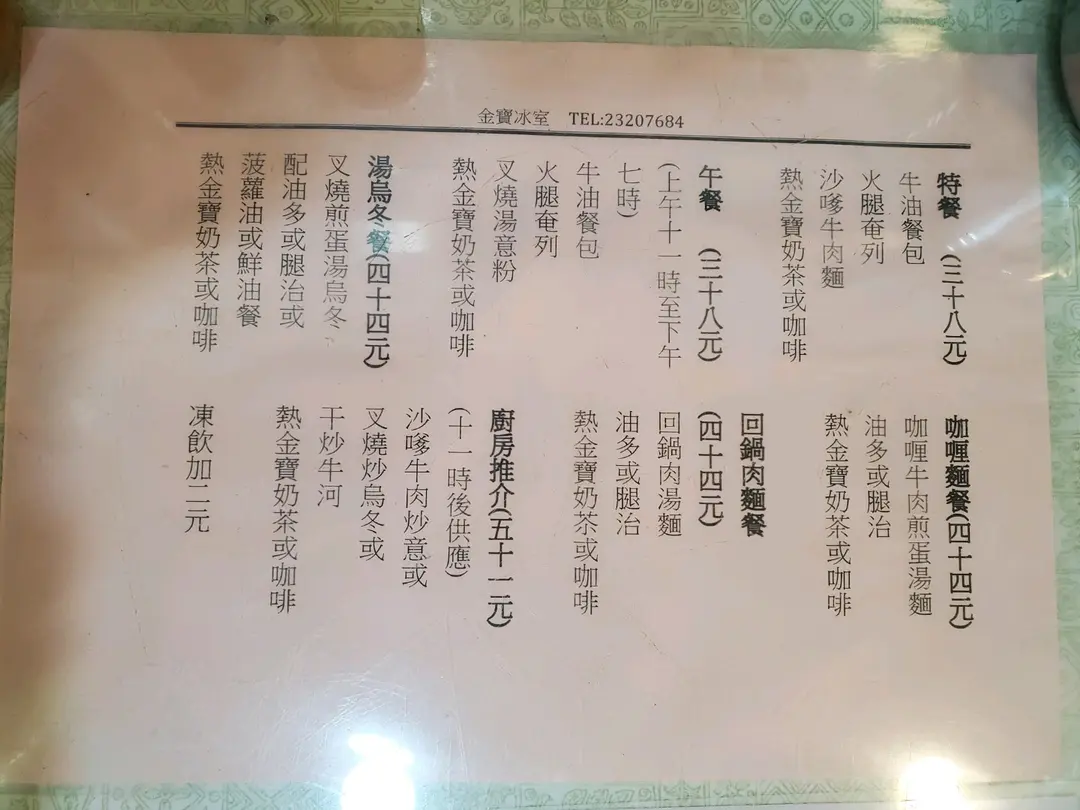 金寶冰室 TEL:23207684
特餐 (三十八元)
牛油餐包
火腿奄列
沙嗲牛肉麵
熱金寶奶茶或咖啡
午餐 (三十八元)
(上午十一時至下午
七時)
牛油餐包
火腿奄列
叉燒湯意粉
熱金寶奶茶或咖啡
湯烏冬餐(四十四元)
叉燒煎蛋湯烏冬
配油多或腿治或
菠蘿油或鮮油餐
熱金寶奶茶或咖啡
咖喱麵餐(四十四元)
咖喱牛肉煎蛋湯麵
油多或腿治
熱金寶奶茶或咖啡
回鍋肉麵餐
(四十四元)
回鍋肉湯麵
油多或腿治
熱金寶奶茶或咖啡
廚房推介(五十一元)
(十一時後供應)
沙嗲牛肉炒意或
叉燒炒烏冬或
干炒牛河
熱金寶奶茶或咖啡
凍飲加二元